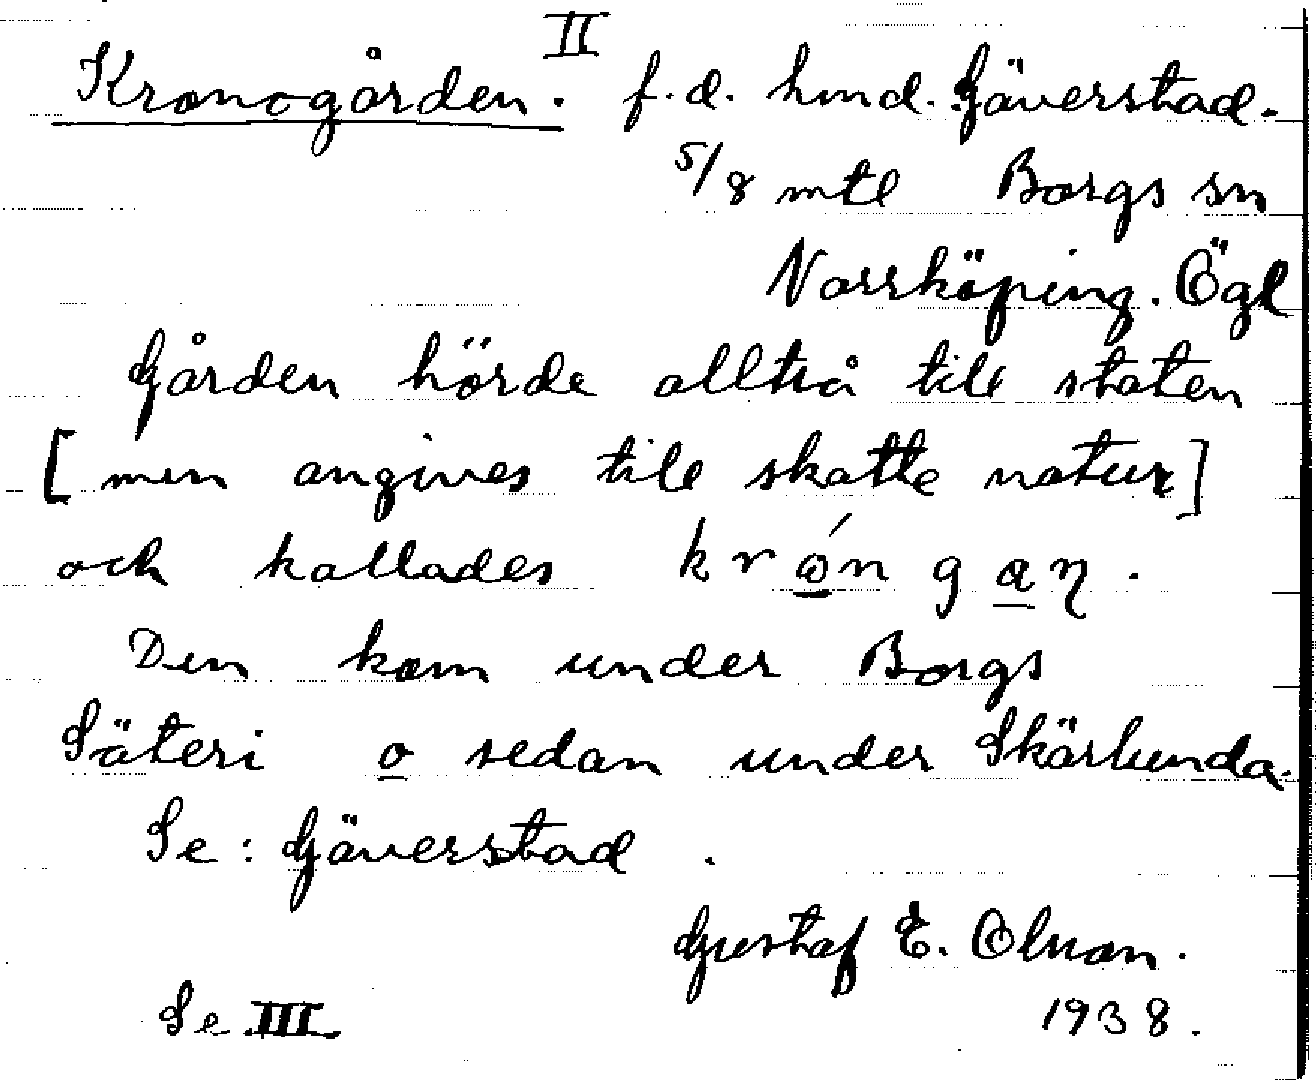 II
Kronogården. f.d. hmd. Gäverstad.
5/8 mtl Borgs sn
Norrköping. Ögl
Gården hörde alltså till staten
[men angives till skatte natur]
och kallades krøn gaŋ.
Den kom under Borgs
Säteri o sedan under Skärlunda.
Se: Gäverstad.
Gustaf E. Olsson.
Se III 1938.